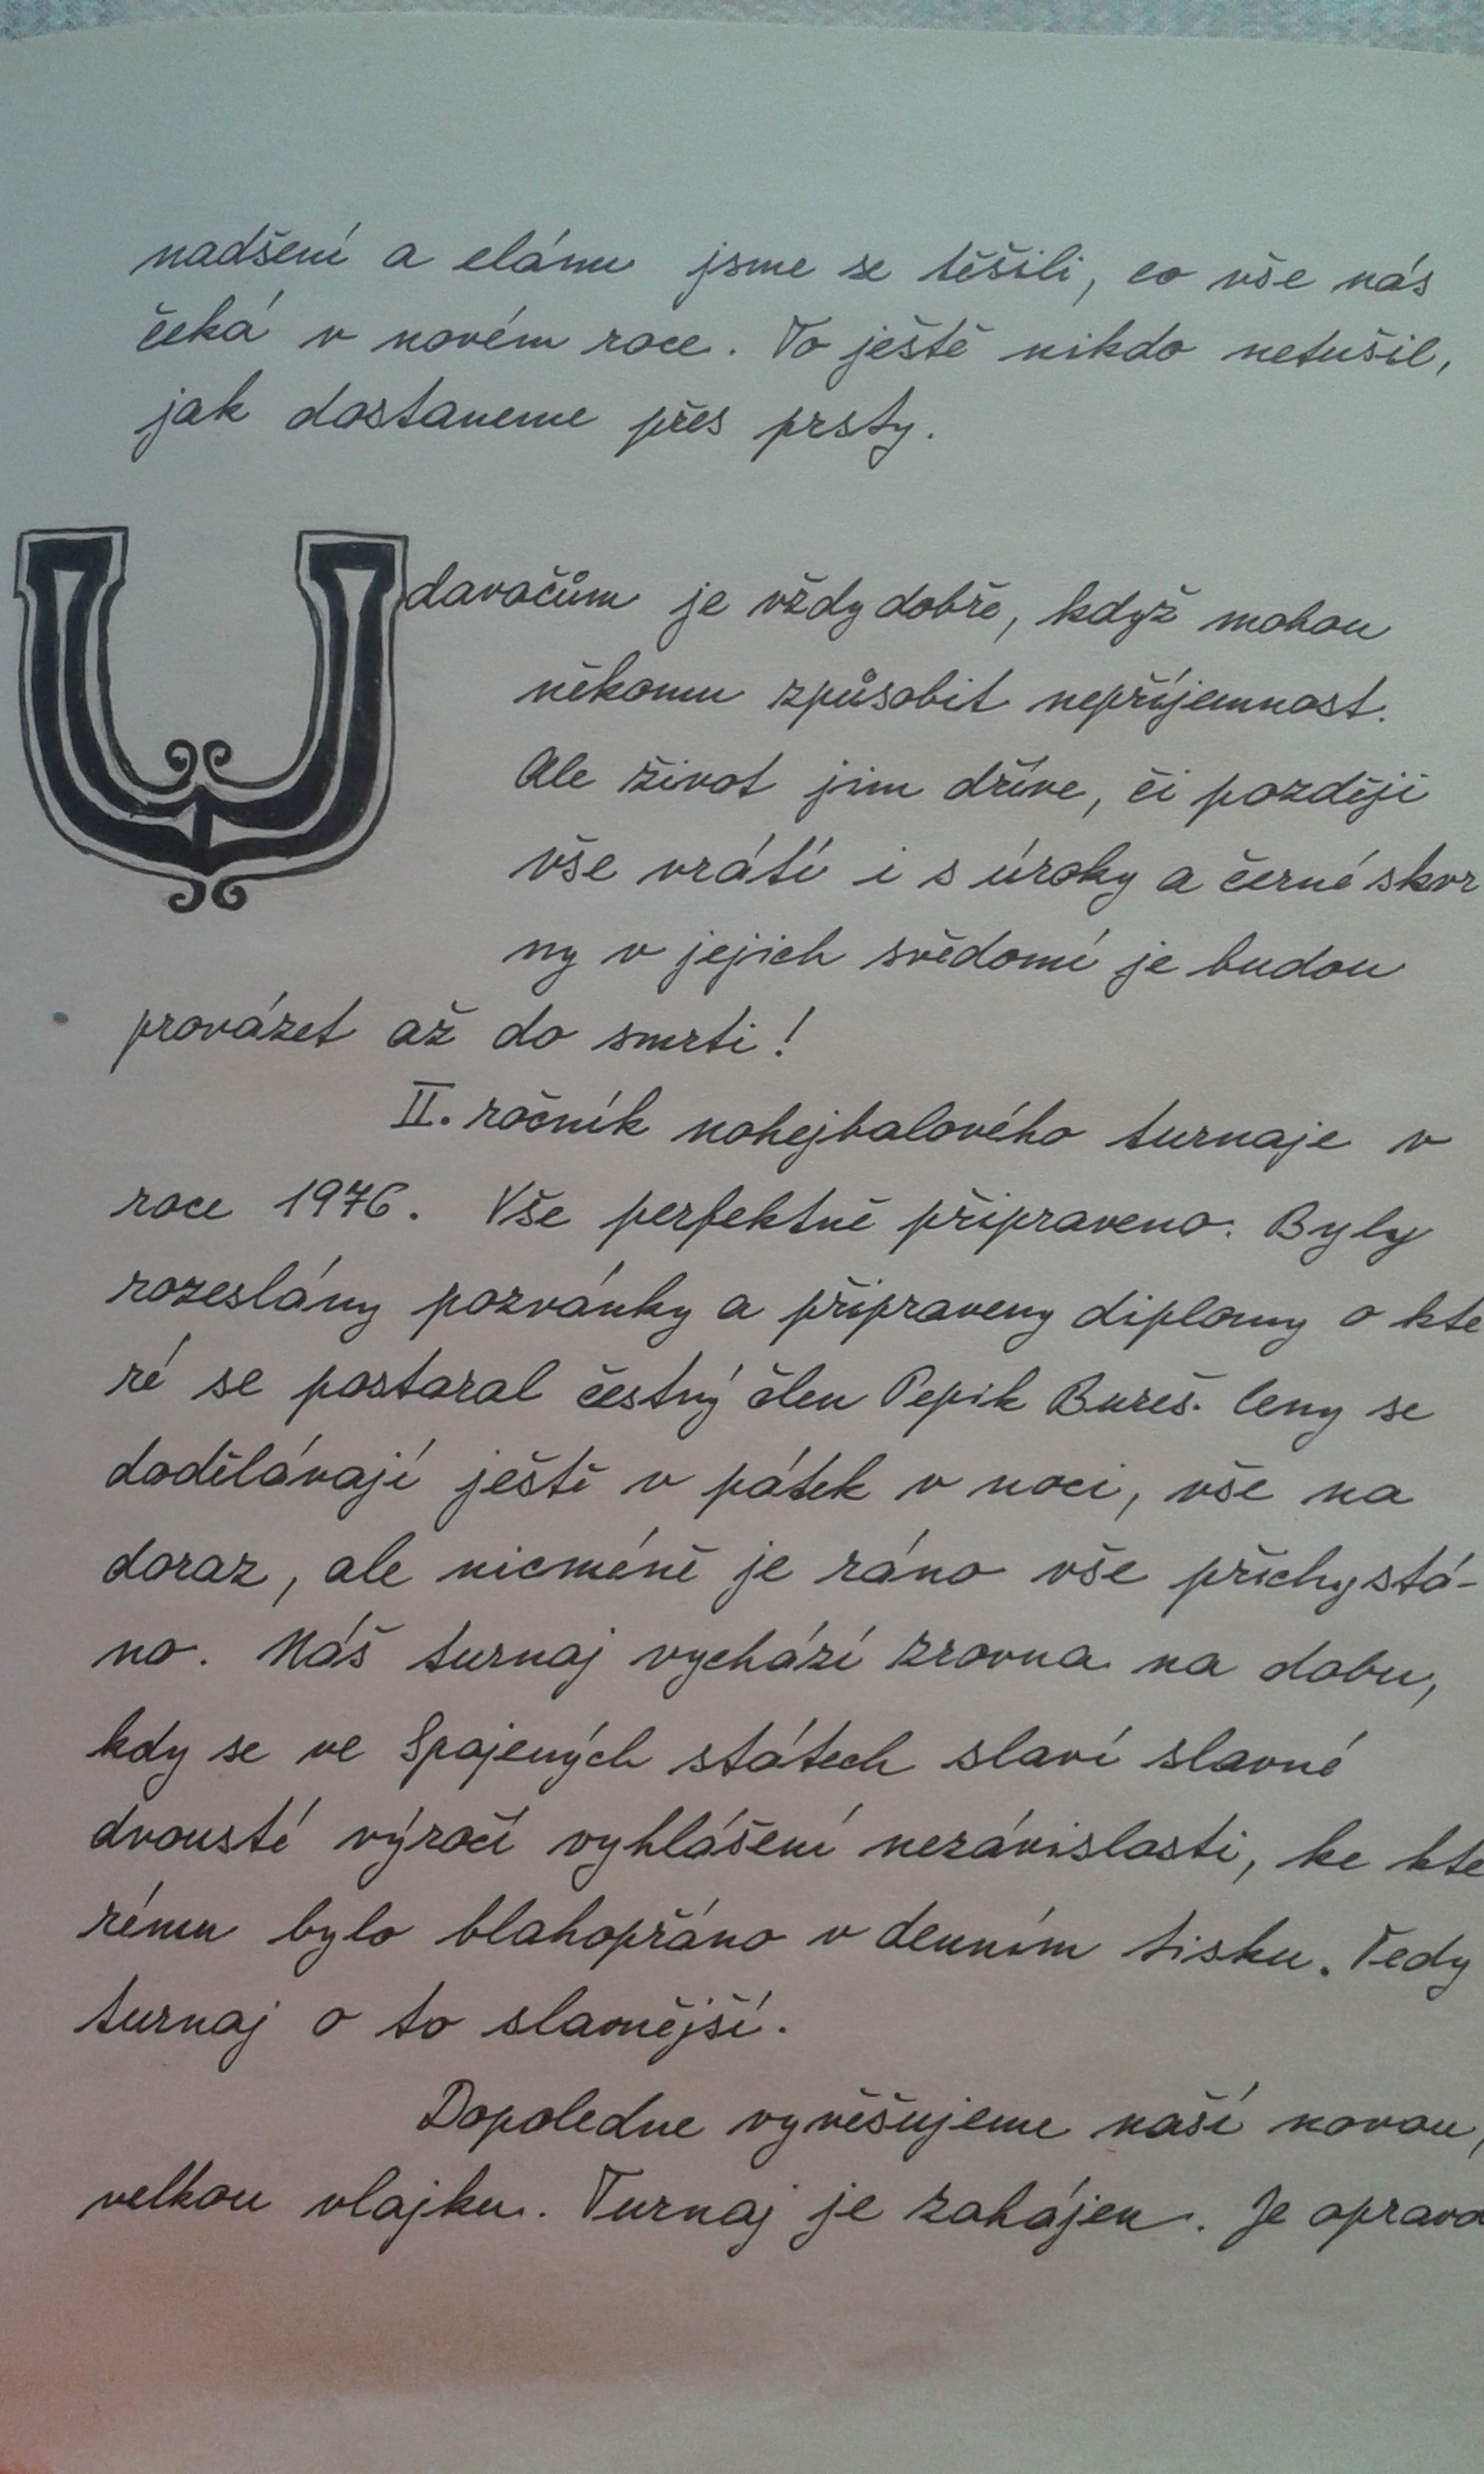 nadšení a elánu jsme se těšili, co vše nás
čeká v novém roce. To ještě nikdo netušil,
jak dostaneme přes prsty.
Udavačům je vždy dobře, když mohou
někomu způsobit nepříjemnost.
Ale život jim dříve, či později
vše vrátí i s úroky a černé skvr
ny v jejich svědomí je budou
provázet až do smrti!
II. ročník nohejbalového turnaje v
roce 1976. Vše perfektně připraveno. Byly
rozeslány pozvánky a připraveny diplomy o kte
ré se postaral čestný člen Pepik Bureš. Ceny se
dodělávají ještě v pátek v noci, vše na
doraz, ale nicméně je ráno vše přichystá-
no. Náš turnaj vychází zrovna na dobu,
kdy se ve Spojených státech slaví slavné
dvousté výročí vyhlášení nezávislosti, ke kte
rému bylo blahopřáno v denním tisku. Tedy
turnaj o to slavnější.
Dopoledne vyvěšujeme naší novou,
velkou vlajku. Turnaj je zahájen. Je opravd